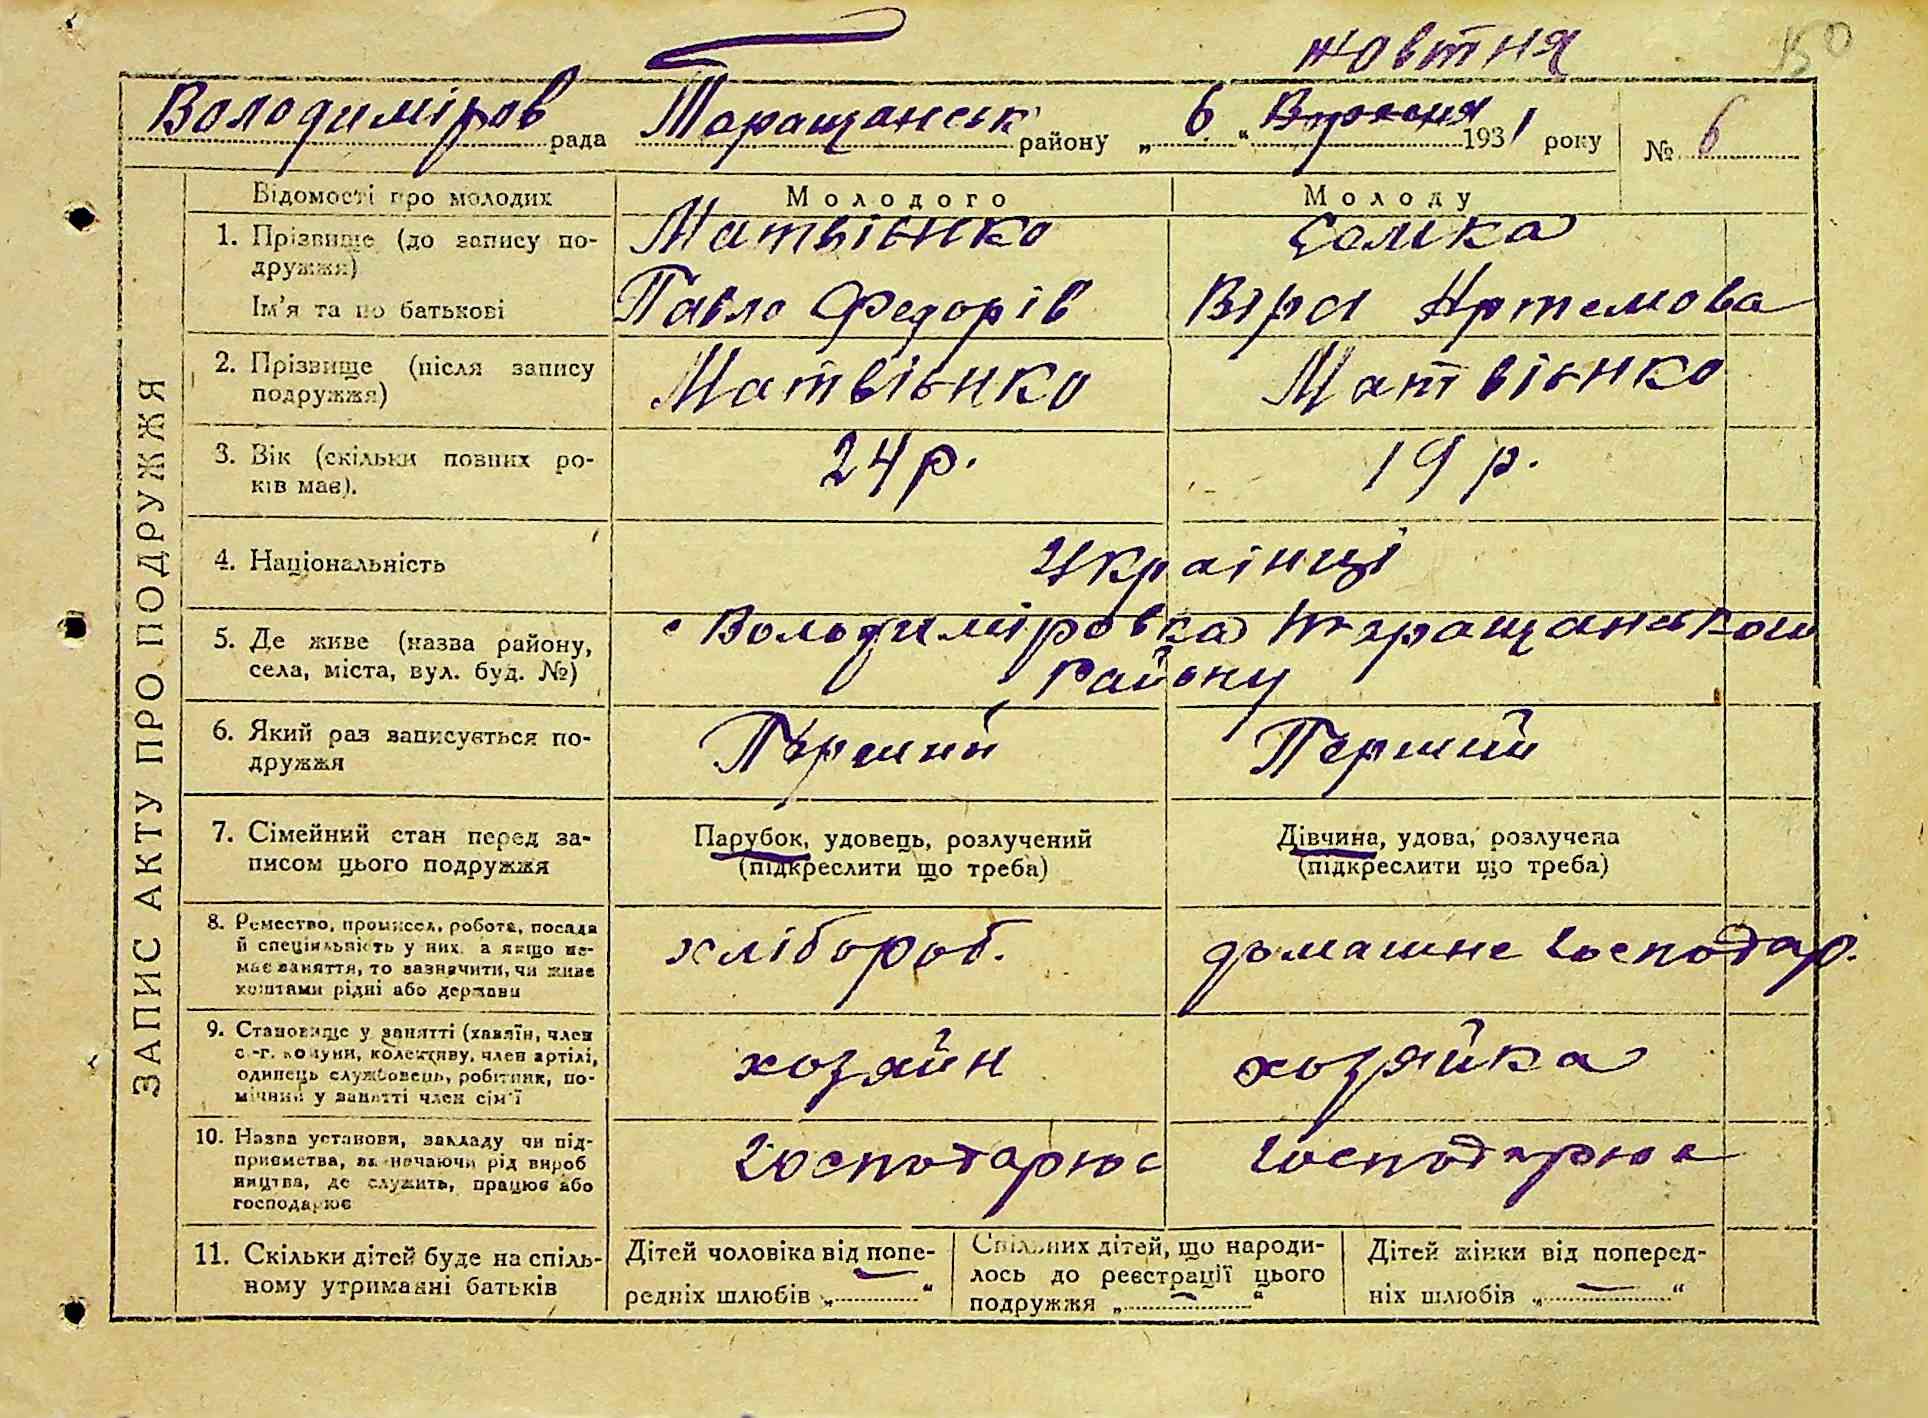 жовтня
150
Володиміров рада Таращанськ району „ 6 “ Вересня 1931 року № 6
ЗАПИС АКТУ ПРО ПОДРУЖЖЯ
Відомості про молодих Молодого Молоду
1. Прізвище (до запису по-
дружжя)
Матвієнко
Ім'я та по батькові Павло Федорів Віра Артемова
2. Прізвище (після запису
подружжя)
Матвієнко Матвієнко
3. Вік (скільки повних ро-
ків має).
24 р. 19 р.
4. Національність Українці
5. Де живе (назва району,
села, міста, вул. буд. №)
Володиміровка Таращанського
Району
6. Який раз записується по-
дружжя
Перший Перший
7. Сімейний стан перед за-
писом цього подружжя
Парубок, удовець, розлучений
(підкреслити що треба)
Дівчина, удова, розлучена
(підкреслити що треба)
8. Ремество, промисел, робота, посада
й спеціяльність у них, а якщо не-
має заняття, то зазначити, чи живе
коштами рідні або держави
хлібороб. домашнє господар.
9. Становище у занятті (хазяїн, член
с.-г. комуни, колективу, член артілі,
одинець службовець, робітник, по-
мічний у занятті член сім'ї
хозяйн хозяйка
10. Назва установи, закладу чи під-
приємства, зазначаючи рід вироб
ництва, де служить, працює або
господарює
Господарює Господарює
11. Скільки дітей буде на спіль-
ному утриманні батьків
Дітей чоловіка від попе-
редніх шлюбів „ — “
Спільних дітей, що народи-
лось до реєстрації цього
подружжя „ — “
Дітей жінки від поперед-
ніх шлюбів „ — “